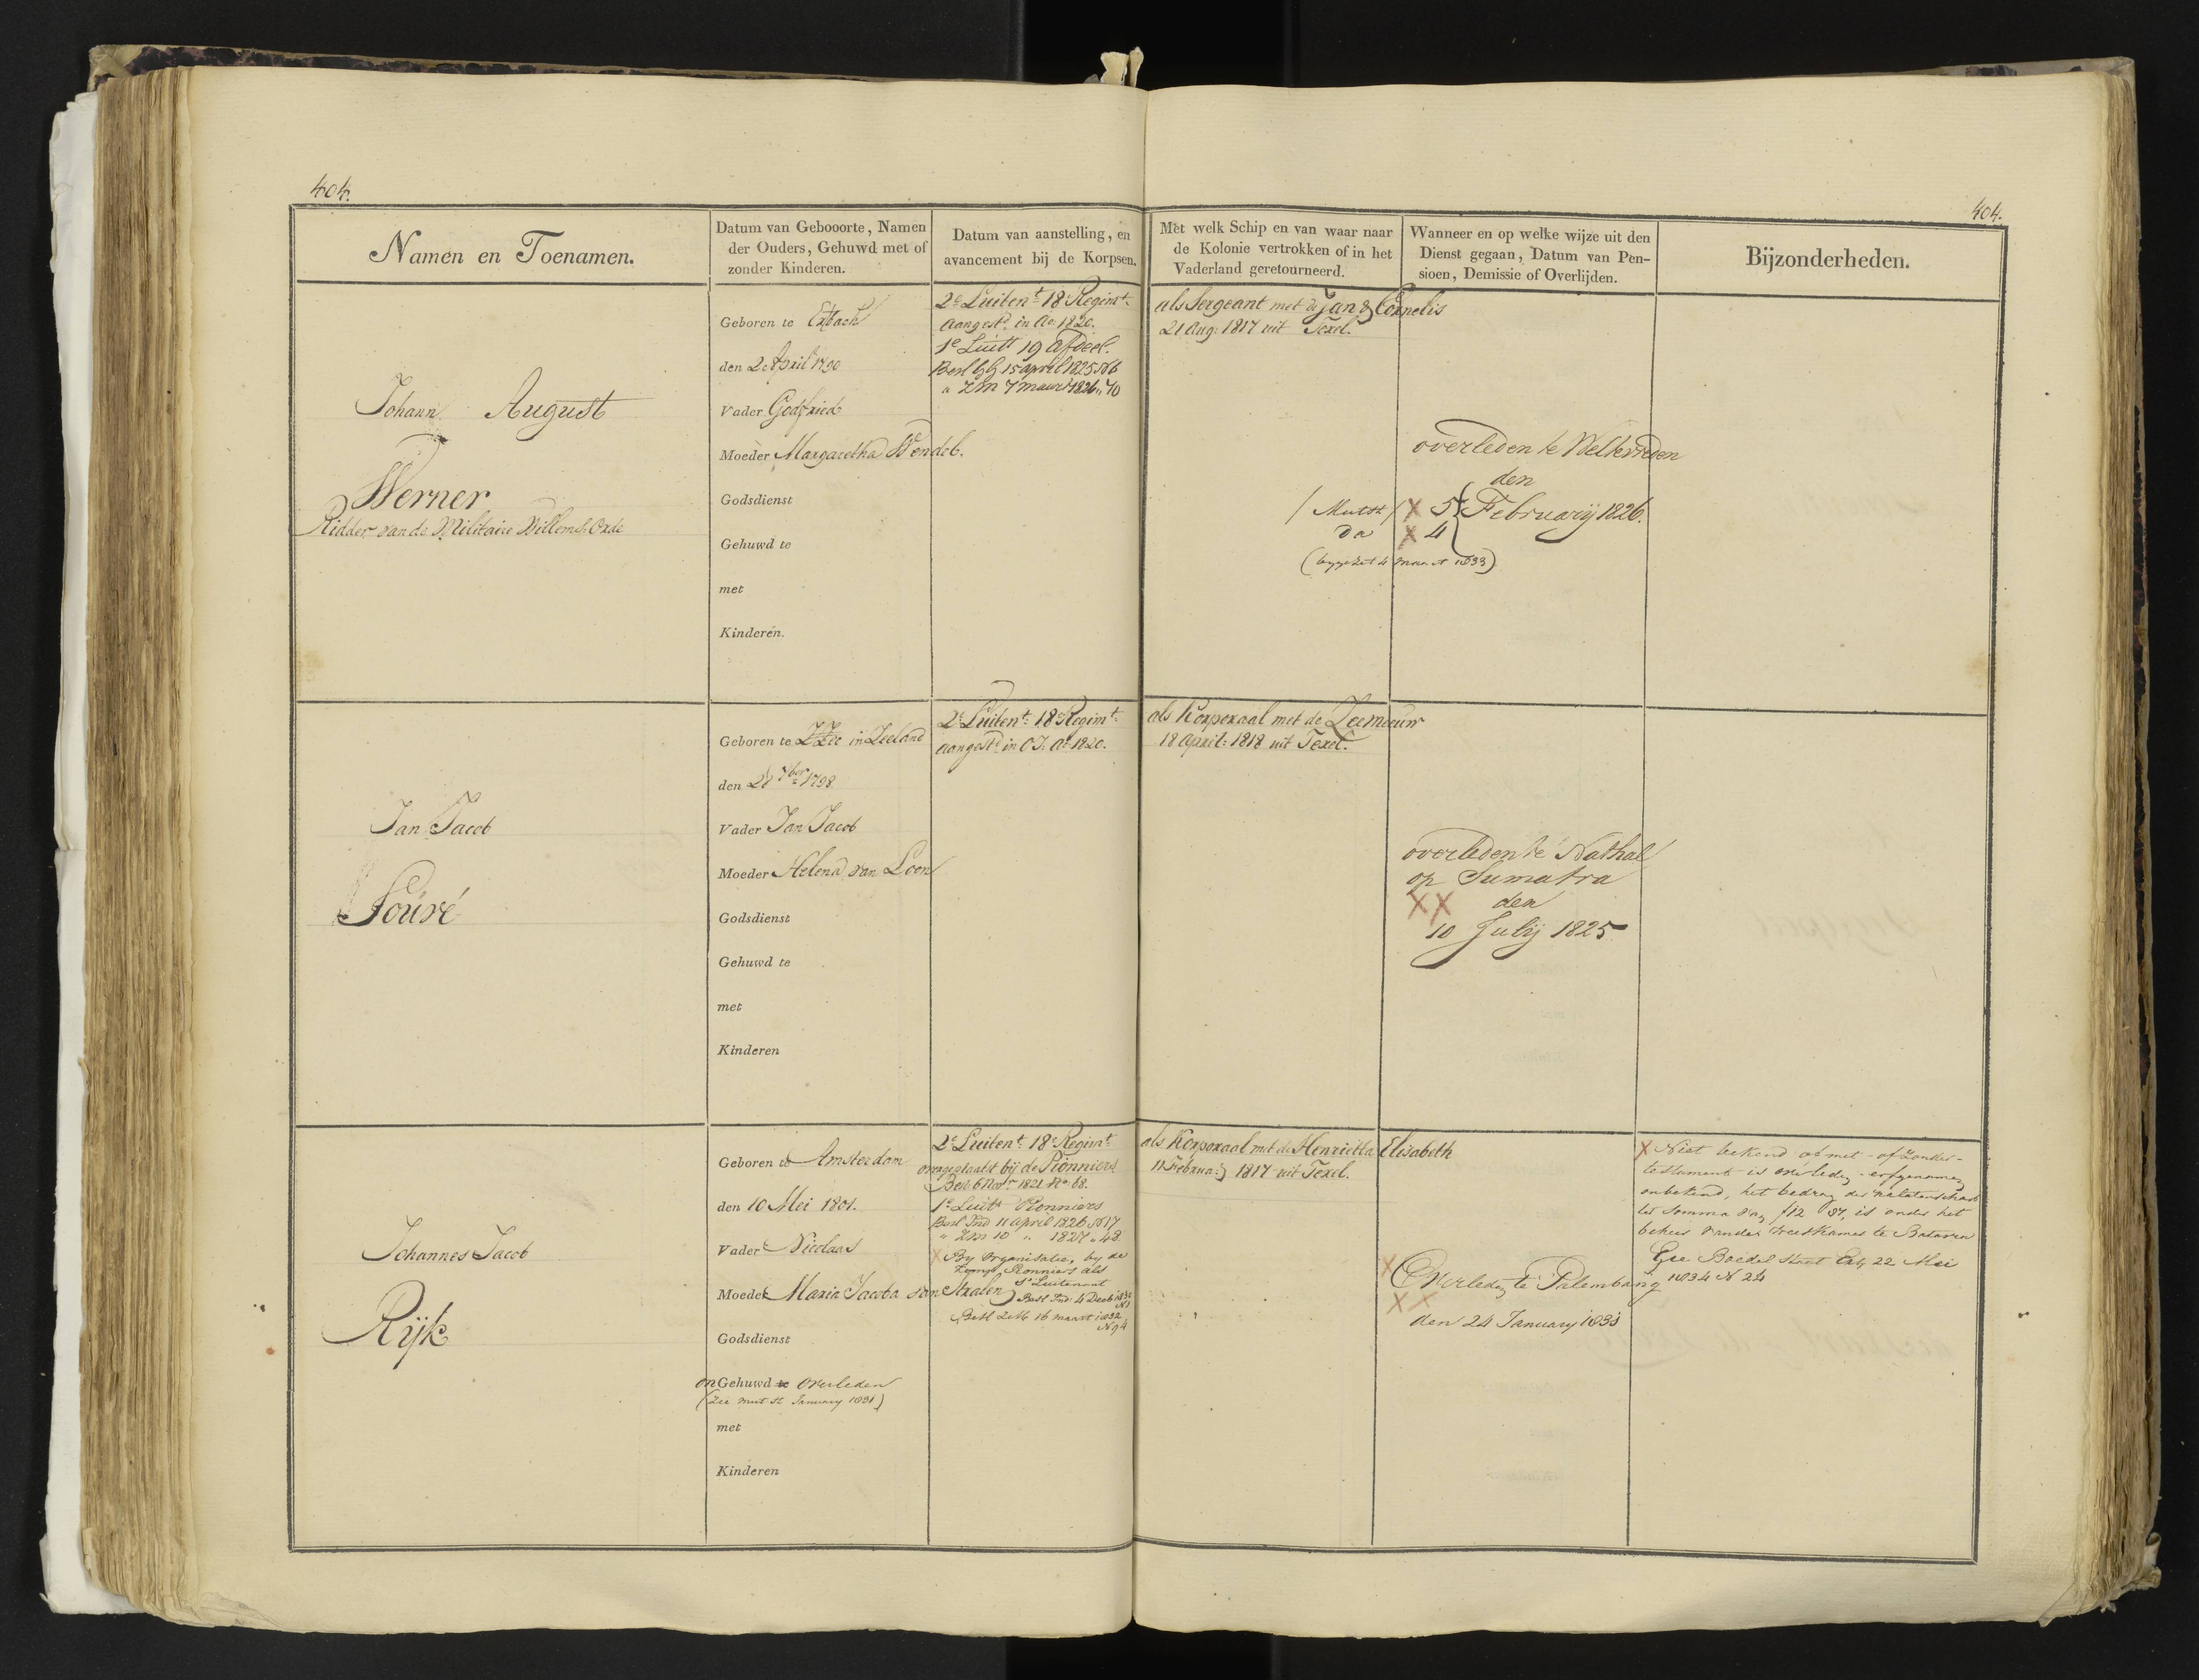 404.
404.
Namen en Toenamen.
Datum van Gebooorte, Namen
der Ouders, Gehuwd met of
zonder Kinderen.
Datum van aanstelling, en
avancement bij de Korpsen.
Met welk Schip en van waar naar
de Kolonie vertrokken of in het
Vaderland geretourneerd.
Wanneer en op welke wijze uit den
Dienst gegaan, Datum van Pen-
sioen, Demissie of Overlijden.
Bijzonderheden.
Johann August
Werner
Ridder van de Militaire Willems Orde
Geboren te Erbach
den 2e April 1790
Vader Godfried
Moeder Margaretha
Godsdienst
Gehuwd te
met
Kinderen.
2e Luitent 18e Regimt
Aangestd in Ao 1820.
1e Luitt 19 Afdeel.
Besl GG 15 april 1825 N 6
" ZM 7 maart 1826 " 70
als Sergeant met de Jan & Cornelis
21 Aug: 1817 uit Texel.
overleden te Weltevreden
den
/ Mutst / X 5 February 1826.
Da X 4
(bygezet 4 maart 1833)
Jan Jacob
Souré
Geboren te ZZee in Zeeland
den 28 7ber 1798
Vader Jan Jacob
Moeder Helena van Loon
Godsdienst
Gehuwd te
met
Kinderen
2e Luitent 18e Regimt
aangestd in O.I. Ao 1820.
als Korporaal met de Zeemeeuw
18 April: 1818 uit Texel.
overleden te Nathal
op Sumatra
XX den
10 Julij 1825
Johannes Jacob
Rijk
Geboren te Amsterdam
den 10 Mei 1801.
Vader Nicolaas
Moeder Maria Jacoba van Stralen
Godsdienst
onGehuwd te overleden
(Zie mut st January 1831)
met
Kinderen
2e Luitent 18e Regimt
overgeplaatst bij de Pionniers
Besl: 6 Novr 1821 No 68.
1e Luitt Pionniers
Besl Ind 11 april 1826 N 17
" ZM 10 " 1827 " 48
X By Organisatie, by de
Komp. Pionniers als
1e Luitenant
Besl Ind: 4 Decb 1830
N 1
Besl ZM 16 maart 1832
N 94
als Korporaal met de Henrietta Elisabeth
11 Februa: 1817 uit Texel.
X
Overleden te Palembang
XX
den 24 January 1831
X Niet bekend of met - of zonder -
testament is overleden - erfgenamen
onbekend, het bedrag der nalatenschap
ter Somma van f 12 87, is onder het
beheer van der Weeskamer te Batavia
Zie Boedel Staat Exh 22 Mei
1834 N 24